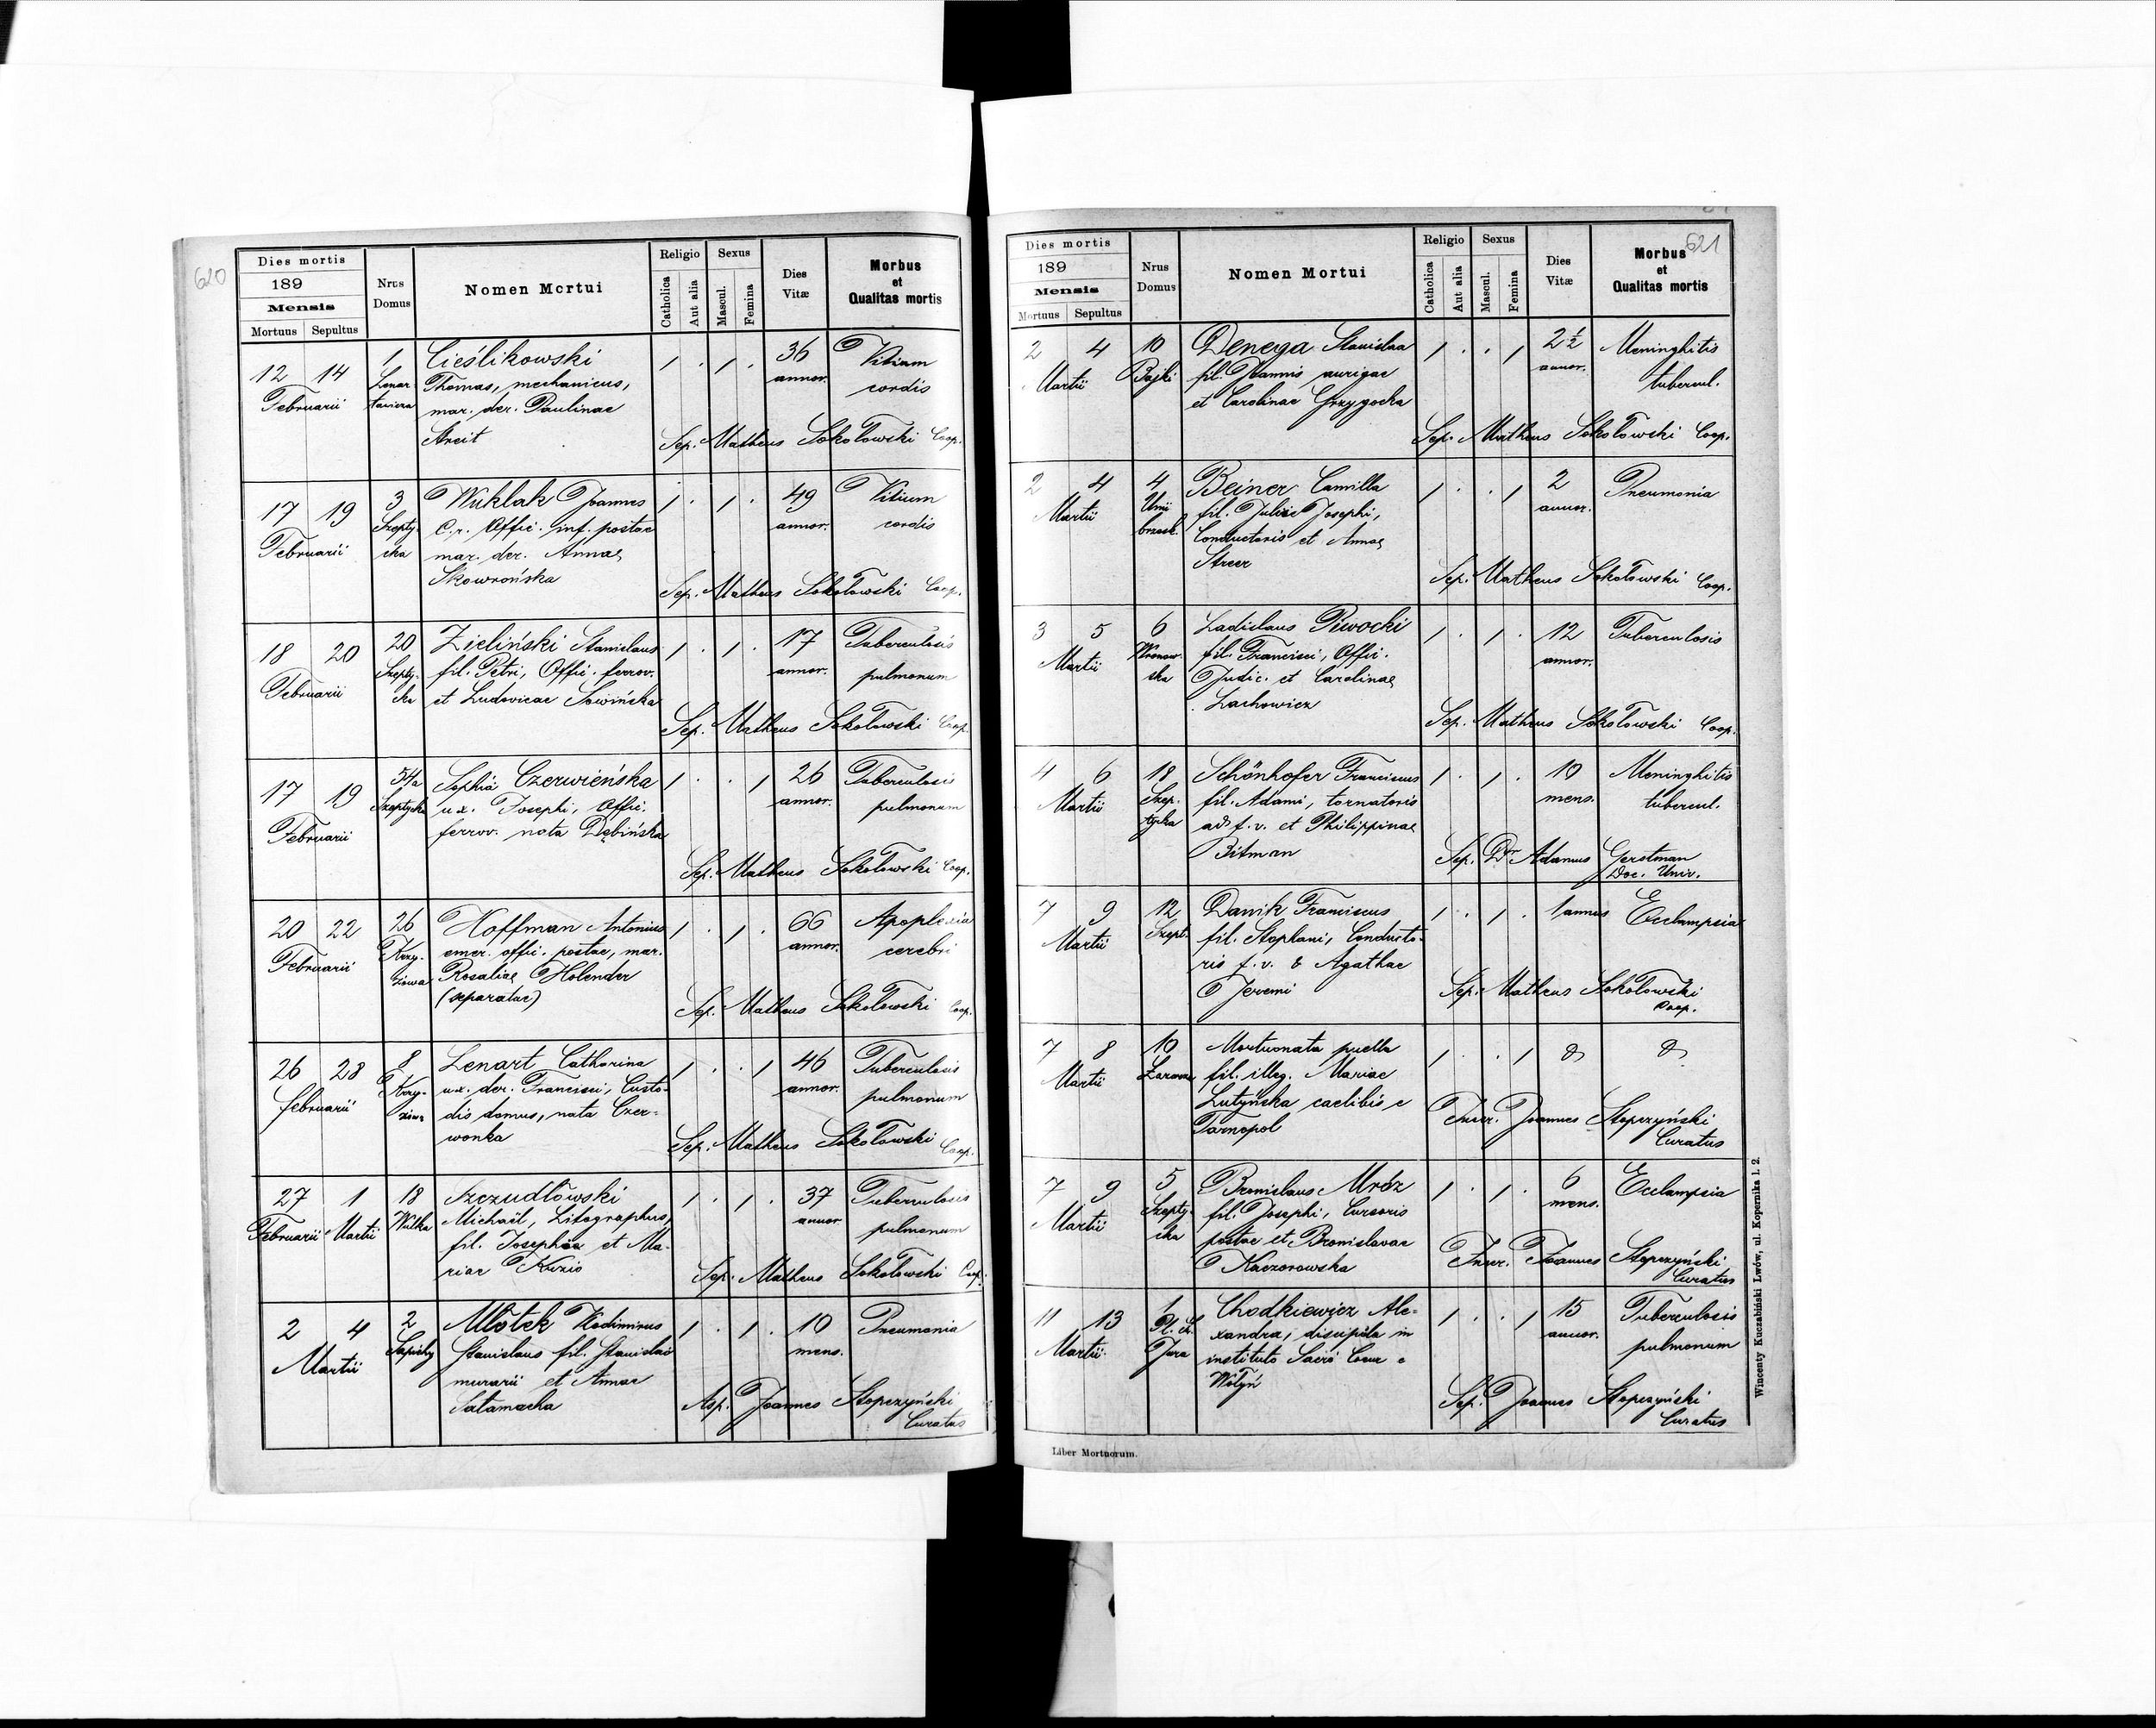 620
Dies mortis
189
Mensis
Mortuus Sepultus
Nrus Domus
Nomen Mortui
Religio
Catholica
Aut alia
Sexus
Mascul.
Femina
Dies Vitæ
Morbus et Qualitas mortis
12 14 1 Cieślikowski 1 . 1 . 36 Vitium
Februarii Lenar Thomas, mechanicus, annor. cordis
towicza mar. der. Paulinae
Streit Sep. Matheus Sokołowski Coop.
17 19 3 Wuklak Joannes 1 . 1 . 49 Vitium
Februarii Szepty- C. r. Offic. inf. postae annor. cordis
cka mar. der. Annae
Skowrońska Sep. Matheus Sokołowski Coop.
18 20 20 Zieliński Stanislaus 1 . 1 . 17 Tuberculosis
Februarii Szepty- fil. Petri, Offic. ferrov. annor. pulmonum
cka et Ludovicae Sowińska
Sep. Matheus Sokołowski Coop.
17 19 54a Sophia Czerwieńska 1 . . 1 26 Tuberculosis
Februarii Szeptycka ux. Josephi, Offic. annor. pulmonum
ferrov. nata Dębińska
Sep. Matheus Sokołowski Coop.
20 22 26 Hoffman Antonius 1 . 1 . 66 Apoplexia
Februarii Krzy- emer. offic. postae, mar. annor. cerebri
żowa Rosaliae Holender
(separatae) Sep. Matheus Sokołowski Coop.
26 28 8 Lenart Catharina 1 . . 1 46 Tuberculosis
februarii Krzy- ux. der. Francisci, Custo- annor. pulmonum
żowa dis domus, nata Czer-
wonka Sep. Matheus Sokołowski Coop.
27 1 18 Szczudłowski 1 . 1 . 37 Tuberculosis
Februarii Martii Wulka Michaël, Litographus, annor. pulmonum
fil. Josephi et Ma-
riae Kuzio Sep. Matheus Sokołowski Coop.
2 4 2 Młotek Wladimirus 1 . 1 . 10 Pneumonia
Martii Sapiehy Stanislaus fil. Stanislai mens.
murarii et Annae
Sałamacha Asp. Joannes Stopczyński
Curatus
621
Dies mortis
189
Mensis
Mortuus Sepultus
Nrus Domus
Nomen Mortui
Religio
Catholica
Aut alia
Sexus
Mascul.
Femina
Dies Vitæ
Morbus et Qualitas mortis
2 4 10 Denega Stanislaa 1 . . 1 2½ Meninghitis
Martii Bajki fil. Joannis aurigae annor. tubercul.
et Carolinae Grzygocka
Sep. Matheus Sokołowski Coop.
2 4 4 Beiner Camilla 1 . . 1 2 Pneumonia
Martii fil. Josephi, annor.
Conductoris et Annae
Streer Sep. Matheus Sokołowski Coop.
3 5 6 Ladislaus Piwocki 1 . 1 . 12 Tuberculosis
Martii Wronow- fil. Francisci, Offic. annor.
ska Judic. et Carolinae
Lachowicz Sep. Matheus Sokołowski Coop.
4 6 18 Schönhofer Franciscus 1 . 1 . 10 Meninghitis
Martii Szep- fil. Adami, tornatoris mens. tubercul.
tycka ad f. v. et Philippinae
Bitman Sep. Dr Adamus Gerstman
Doc. Univ.
7 9 12 Danik Franciscus 1 . 1 . 1 annus Ecclampsia
Martii Szept. fil. Stephani, Conducto-
ris f. v. & Agathae
Jeremi Sep. Matheus Sokołowski
Coop.
7 8 10 Mortuonata puella 1 . . 1
Martii fil. illeg. Mariae
Lutyńska caelibis e
Tarnopol Joannes Stopczyński
Curatus
7 9 5 Bronislaus Mróz 1 . 1 . 6 Ecclampsia
Martii Szepty- fil. Josephi, Cursoris mens.
cka postae et Bronislavae
Kaczorowska Joannes Stopczyński
Curatus
11 13 1 Chodkiewicz Ale- 1 . . 1 15 Tuberculosis
Martii Pl. S. xandra, discipula in annor. pulmonum
Jura instituto Sacré Coeur e
Wołyń
Sep. Joannes Stopczyński
Curatus
Liber Mortuorum.
Wincenty Kuczabiński Lwów, ul. Kopernika l. 2.